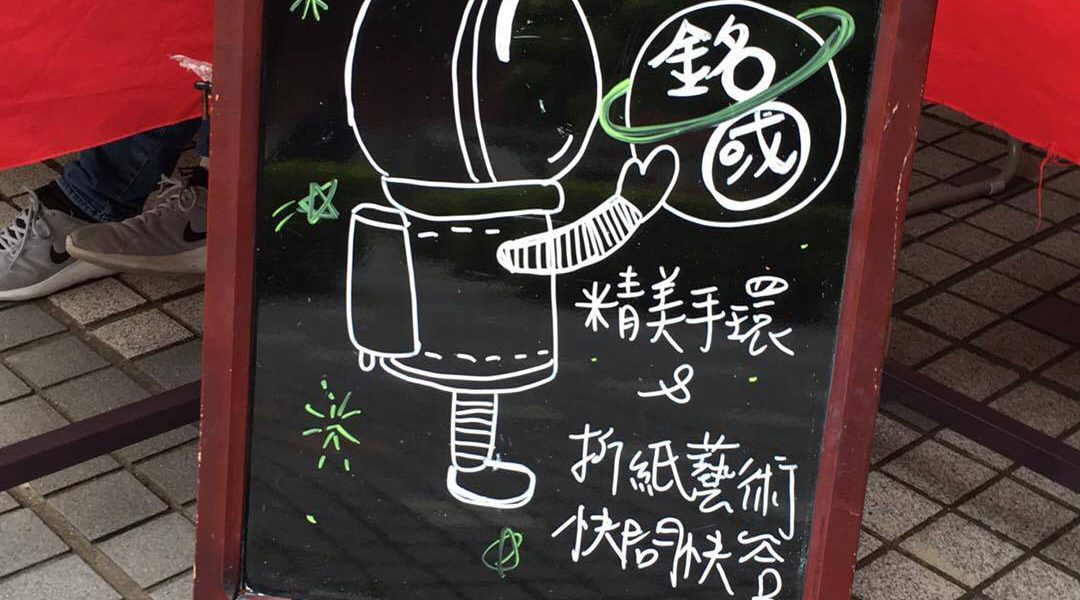 銘國
精美手環
&
折紙藝術
快問快答